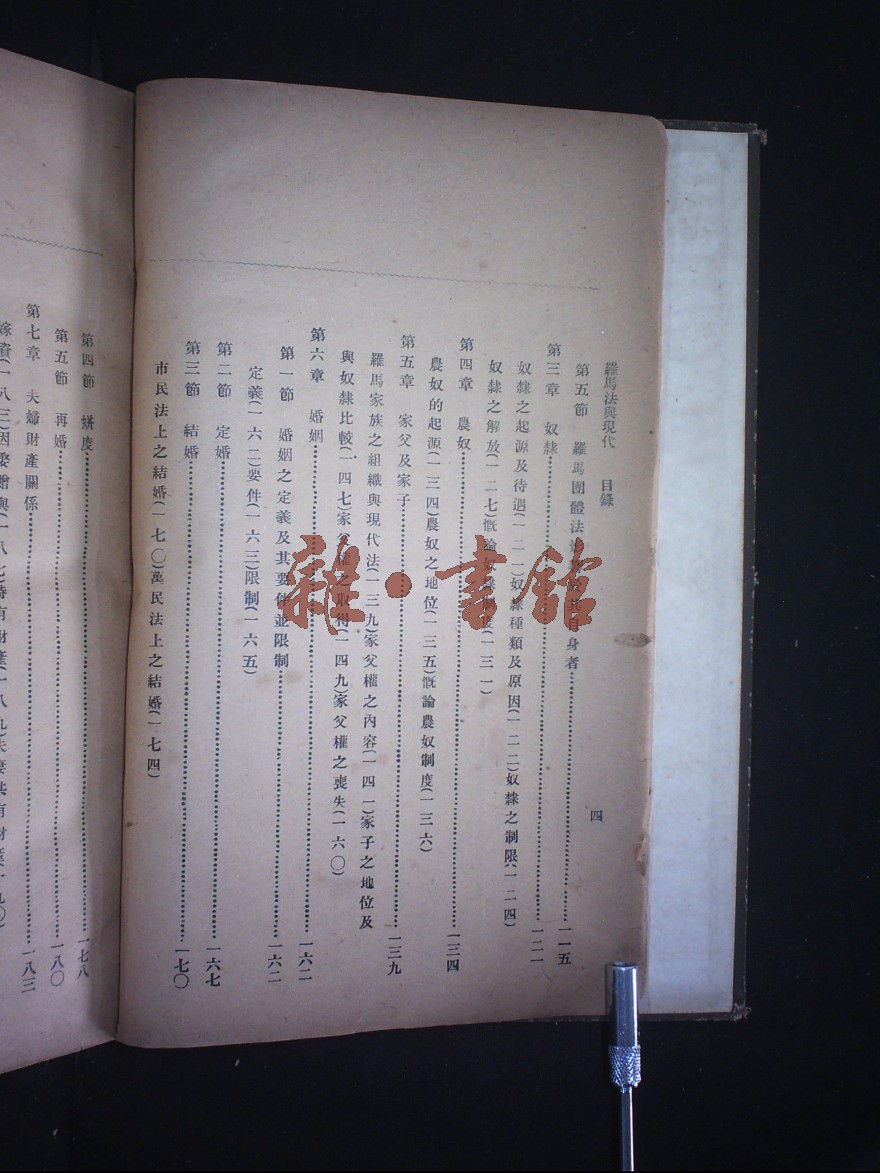 羅馬法與現代　目錄　四
第五節　羅馬團體法 自身者……一一五
第三章　奴隸……一二一
奴隸之起源及待遇(一二一)奴隸種類及原因(一二二)奴隸之制限(一二四)
奴隸之解放(一二七)慨論奴隸制度(一三一)
第四章　農奴……一三四
農奴的起源(一三四)農奴之地位(一三五)慨論農奴制度(一三六)
第五章　家父及家子……一三九
羅馬家族之組織與現代法(一三九)家父權之內容(一四一)家子之地位及
與奴隸比較(一四七)家父權之取得(一四九)家父權之喪失(一六〇)
第六章　婚姻……一六二
第一節　婚姻之定義及其要件並限制……一六二
定義(一六二)要件(一六三)限制(一六五)
第二節　定婚……一六七
第三節　結婚……一七〇
市民法上之結婚(一七〇)萬民法上之結婚(一七四)
第四節　姘度……一七八
第五節　再婚……一八〇
第七章　夫婦財產關係……一八三
嫁資(一八三)因娶贈與(一八七)特有財產(一八九)夫妻共有財產(一九〇)
雜·書館